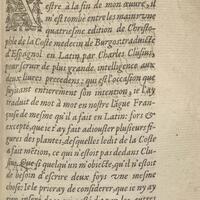 Estre à la fin de mon œuvre, il
m'est tombé entre les mains vne
quatriesme edition de Christo-
phle de la Coste medecin de Burgos traduite
d'Espagnol en Latin: par Charles Clusius,
pour seruir de plus grande intelligence aux
deux liures precedens; qui est l'occasion que
suyuant entierement son intention, ie l'ay
traduit de mot à mot en nostre lãgue Fran-
çoise de mesme qu'il a fait en Latin: fors &
excepté, que ie t'ay fait adiouster plusieurs fi-
gures des plantes, desquelles ledit de la Coste
a fait métion, ce qui n'estoit pas dedans Clu-
sius. Que si quelqu'vn m'obiecte, qu'il n'estoit
de besoin d'escrire deux foys vne mesme
chose: Ie le prieray de considerer, que ie n'y ay